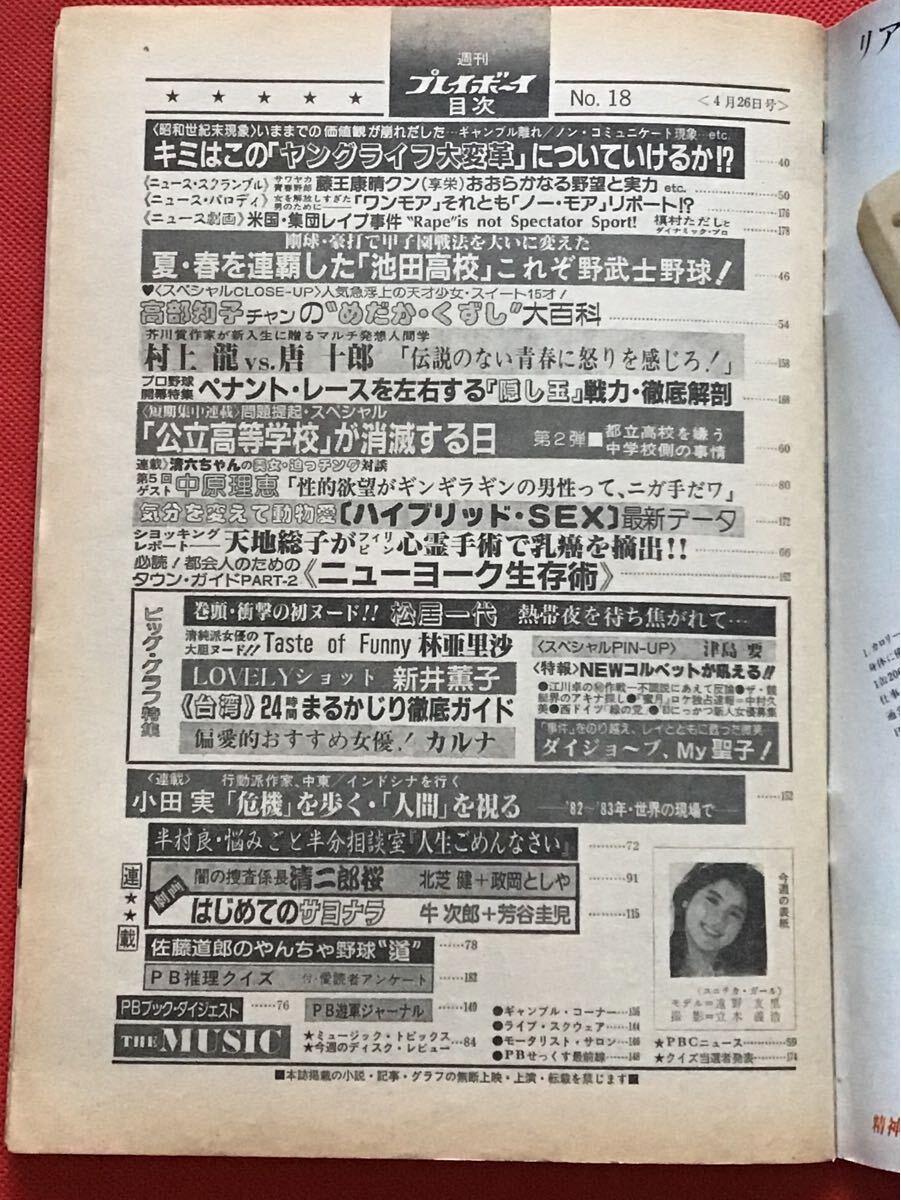 週刊
プレイボーイ
目次
★ ★ ★ ★ ★
No. 18
<4月26日号>
〈昭和世紀末現象〉いままでの価値観が崩れだした…ギャンブル離れ/ノン・コミュニケート現象…etc.
キミはこの「ヤングライフ大変革」についていけるか!? 40
《ニュース・スクランブル》サワヤカ青春野郎 藤王康晴クン(享栄)おおらかなる野望と実力 etc. 50
《ニュース・パロディ》女を解放しすぎた男のために──「ワンモア」それとも「ノー・モア」リポート!? 176
《ニュース劇画》米国・集団レイプ事件 “Rape”is not Spectator Sport! 槇村ただしとダイナミック・プロ 178
剛球・豪打で甲子園戦法を大いに変えた
夏・春を連覇した「池田高校」これぞ野武士野球! 46
♥〈スペシャルCLOSE-UP〉人気急浮上の天才少女・スイート15才!
高部知子チャンの“めだか・くずし”大百科 54
芥川賞作家が新入生に贈るマルチ発想人間学
村上 龍 vs. 唐 十郎 「伝説のない青春に怒りを感じろ!」 158
プロ野球開幕特集 ペナント・レースを左右する『隠し玉』戦力・徹底解剖 168
〈短期集中連載〉問題提起・スペシャル
「公立高等学校」が消滅する日 第2弾■都立高校を嫌う中学校側の事情 60
連載〉清六ちゃんの美女・迫っチング対談
第5回ゲスト 中原理恵「性的欲望がギンギラギンの男性って、ニガ手だワ」 80
気分を変えて動物愛〔ハイブリッド・SEX〕最新データ 172
ショッキングレポート─天地総子がフィリピン心霊手術で乳癌を摘出!! 66
必読!都会人のための
タウン・ガイドPART-2《ニューヨーク生存術》 162
ビッグ・グラフ特集
巻頭・衝撃の初ヌード!! 松居一代 熱帯夜を待ち焦がれて…
清純派女優の大胆ヌード!! Taste of Funny 林亜里沙
〈スペシャルPIN-UP〉 津島 要
LOVELYショット 新井薫子
〈特報〉NEWコルベットが吼える!!
《台湾》24時間まるかじり徹底ガイド
●江川卓の㊙作戦─不調説にあえて反論●ザ・競
髪界のアキナ探し●「蜜月」ロケ独占速報=中村久
美●西ドイツ「緑の党」●'83にっかつ新人女優募集
偏愛的おすすめ女優! カルナ
「事件」をのり越え、レイとともに甦った微笑
ダイジョ〜ブ、My聖子!
〈連載〉 行動派作家、中東/インドシナを行く
小田 実「危機」を歩く・「人間」を視る ─'82〜'83年・世界の現場で─ 152
連★★載
半村良・悩みごと半分相談室『人生ごめんなさい』 72
劇画
闇の捜査係長 清二郎桜 北芝 健+政岡としや 91
はじめてのサヨナラ 牛 次郎+芳谷圭児 115
佐藤道郎のやんちゃ野球“道” 78
PB推理クイズ 付・愛読者アンケート 182
PBブック・ダイジェスト 76
PB遊軍ジャーナル 140
THE MUSIC
★ミュージック・トピックス
★今週のディスク・レビュー 84
●ギャンブル・コーナー 136
●ライブ・スクウェア 144
●モータリスト・サロン 146
●PBせっくす最前線 148
今週の表紙
〈ユニチカ・ガール〉
モデル=遠野友里
撮影=立木義浩
★PBCニュース 59
★クイズ当選者発表 174
■本誌掲載の小説・記事・グラフの無断上映・上演・転載を禁じます■
リア
1. カロリー
身体に
精神